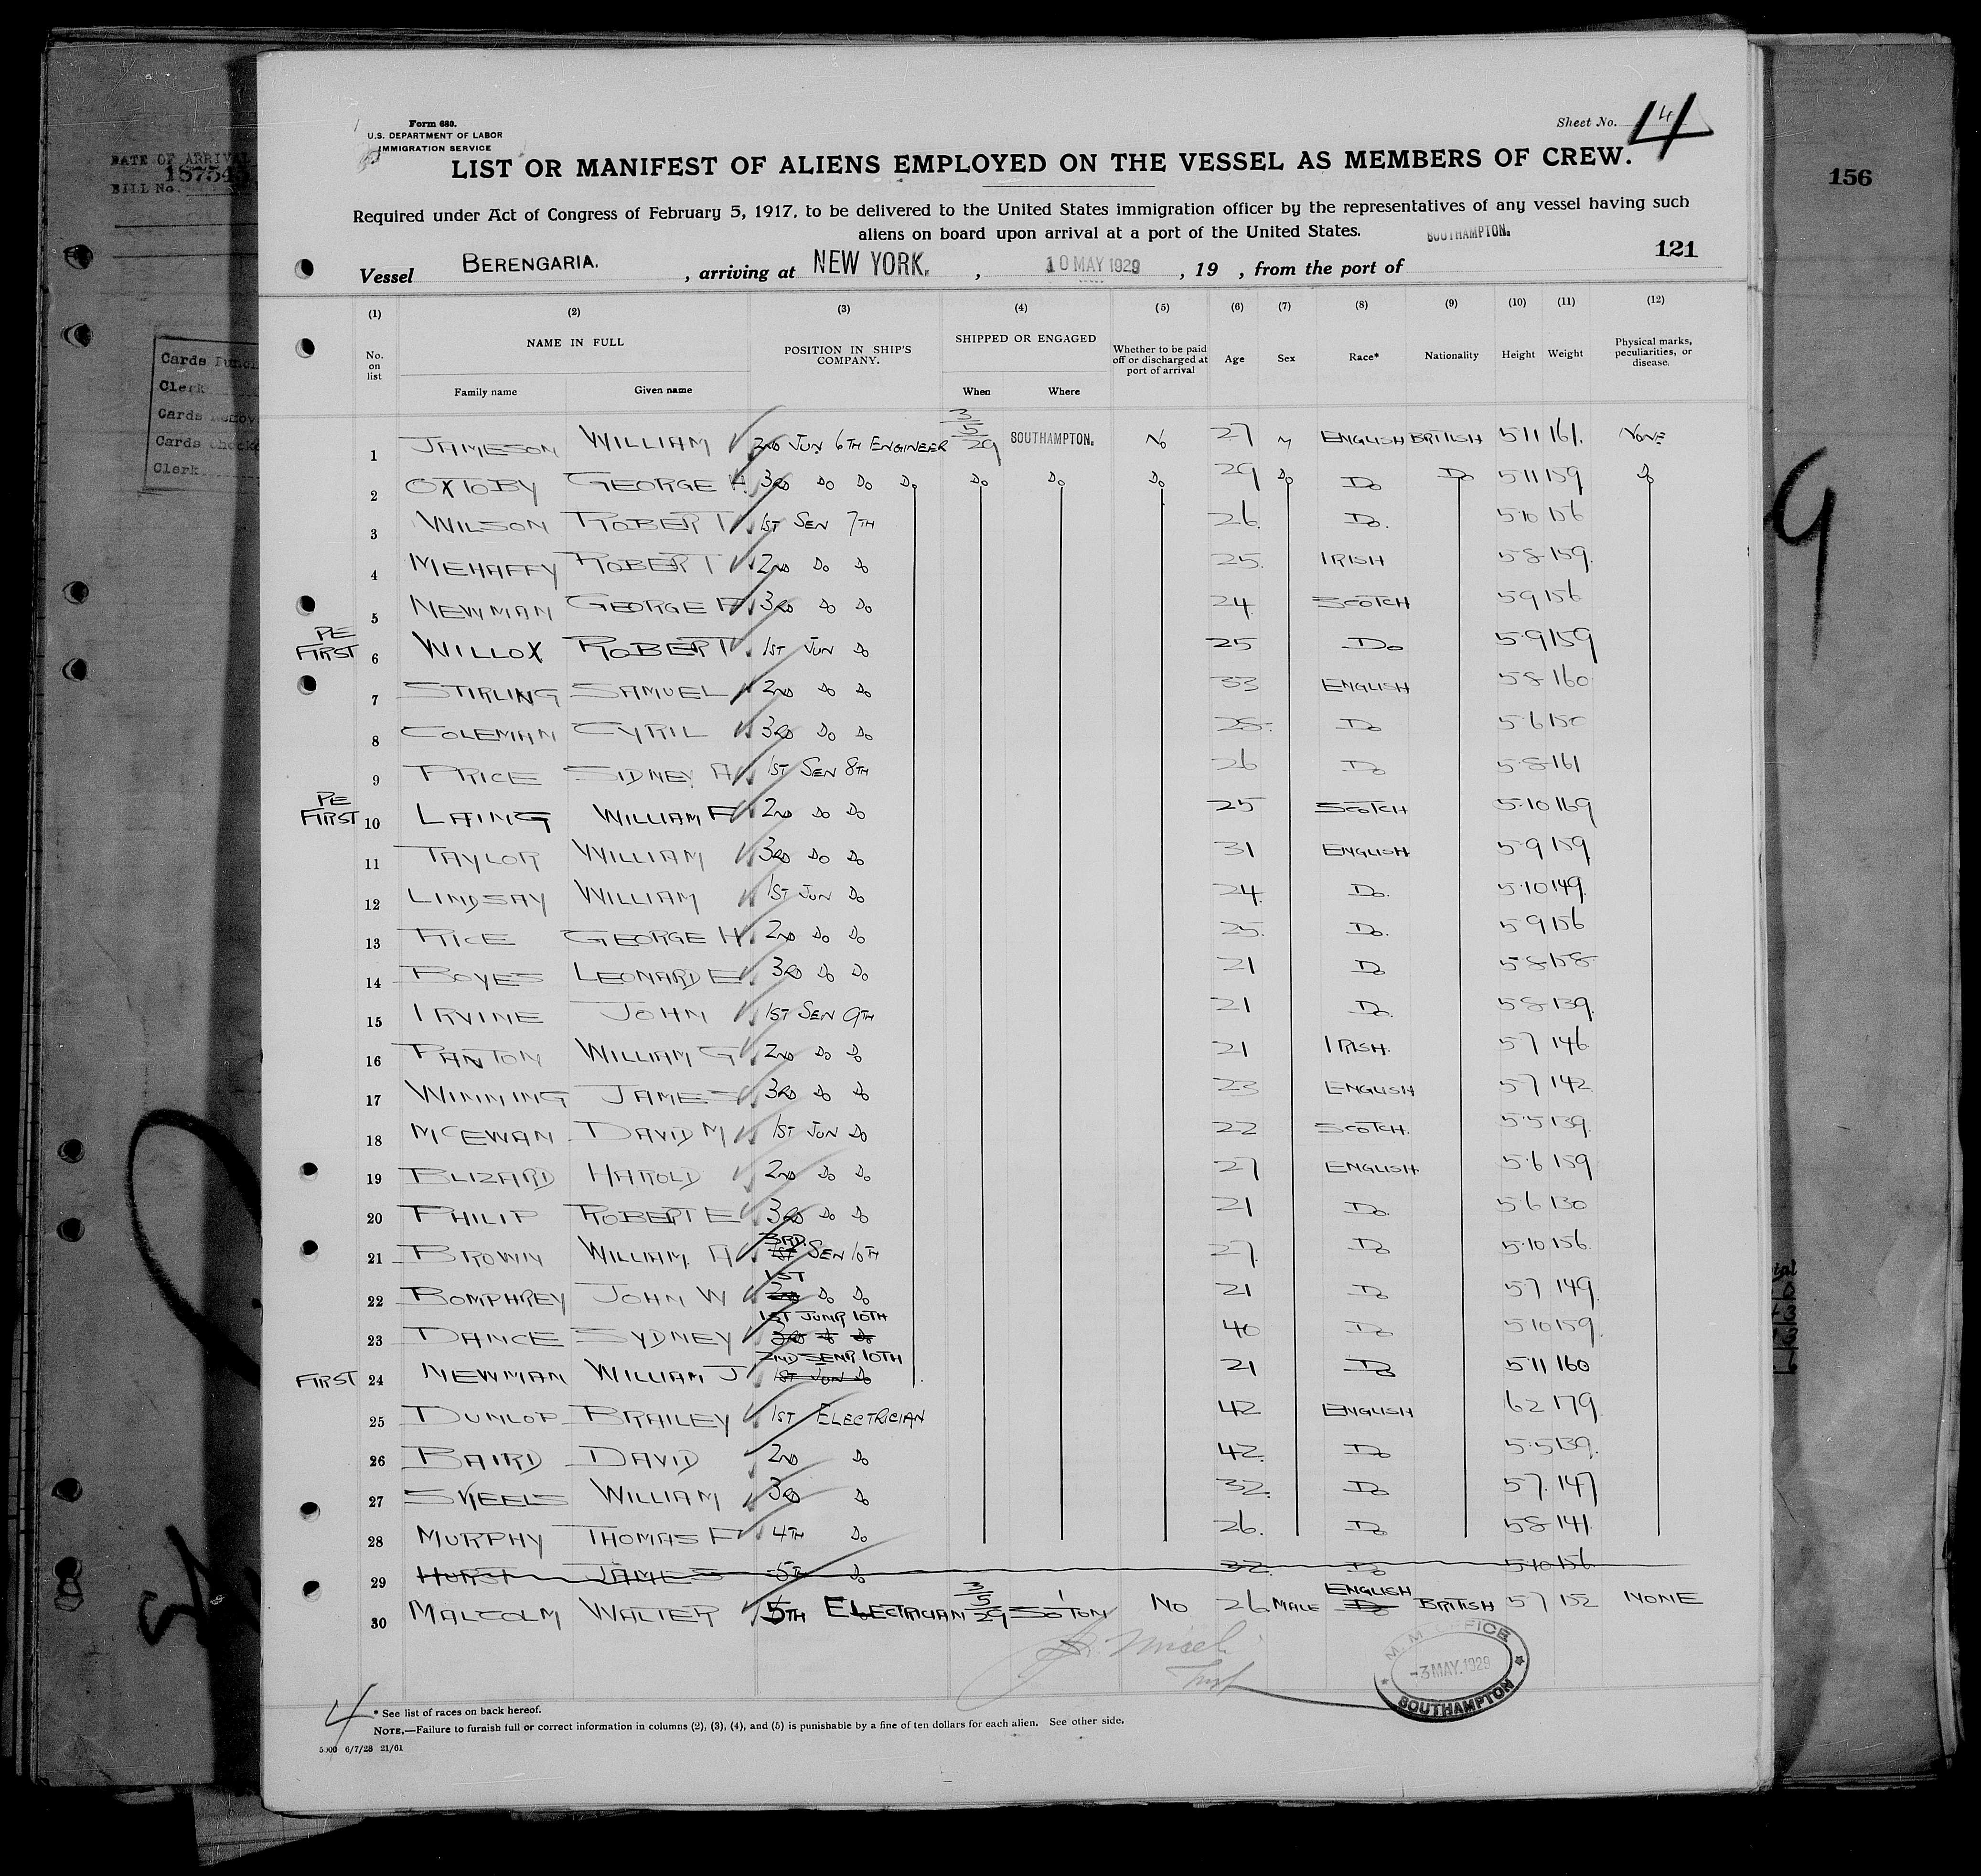 DATE OF ARRIVAL
BILL No.
Cards
Clerk
Cards
Cards
Clerk
156
Form 680.
U.S. DEPARTMENT OF LABOR
IMMIGRATION SERVICE
Sheet No. 4
LIST OR MANIFEST OF ALIENS EMPLOYED ON THE VESSEL AS MEMBERS OF CREW.
Required under Act of Congress of February 5, 1917, to be delivered to the United States immigration officer by the representatives of any vessel having such
aliens on board upon arrival at a port of the United States.
SOUTHAMPTON.
121
Vessel BERENGARIA. , arriving at NEW YORK. , 10 MAY 1929 , 19 , from the port of
(1) (2) (3) (4) (5) (6) (7) (8) (9) (10) (11) (12)
No. on list NAME IN FULL Family name Given name POSITION IN SHIP'S COMPANY. SHIPPED OR ENGAGED When Where Whether to be paid off or discharged at port of arrival Age Sex Race* Nationality Height Weight Physical marks, peculiarities, or disease.
1 JAMESON WILLIAM 2ND JUN 6TH ENGINEER 3/5/29 SOUTHAMPTON. NO 27 M ENGLISH BRITISH 5 11 161. NONE
2 OXTOBY GEORGE H. 3RD DO DO DO DO DO DO 29 DO DO DO 5 11 159 DO
3 WILSON ROBERT 1ST SEN 7TH 26. DO. 5·10 156
4 MEHAFFY ROBERT 2ND DO DO 25. IRISH 5·8 159.
5 NEWMAN GEORGE A 3RD DO DO 24. SCOTCH 5 9 156
PE FIRST 6 WILLOX ROBERT 1ST JUN DO 25 DO 5·9 159
7 STIRLING SAMUEL 2ND DO DO 33 ENGLISH 5 8 160
8 COLEMAN CYRIL 3RD DO DO 28. DO 5·6 150
9 PRICE SIDNEY A 1ST SEN 8TH 26 DO 5·8 161
PE FIRST 10 LAING WILLIAM F 2ND DO DO 25 SCOTCH 5·10 169
11 TAYLOR WILLIAM 3RD DO DO 31 ENGLISH 5·9 159
12 LINDSAY WILLIAM 1ST JUN DO 24. DO. 5·10 149.
13 RICE GEORGE H. 2ND DO DO 25. DO. 5 9 156
14 BOYES LEONARD E 3RD DO DO 21 DO 5·8 158
15 IRVINE JOHN 1ST SEN 9TH 21 DO. 5·8 139.
16 PANTON WILLIAM G 2ND DO DO 21 IRISH. 5 7 146
17 WINNING JAMES 3RD DO DO 23 ENGLISH 5 7 142
18 MCEWAN DAVID M 1ST JUN DO 22 SCOTCH. 5·5 139.
19 BLIZARD HAROLD 2ND DO DO 27 ENGLISH 5·6 159
20 PHILIP ROBERT E 3RD DO DO 21 DO 5·6 130
21 BROWN WILLIAM. A 3RD. 1ST SEN 10TH 27. DO 5·10 156.
22 BOMPHREY JOHN W 1ST 2ND DO DO 21 DO 5 7 149.
23 DANCE SYDNEY 1ST JUNR 10TH 3RD DO DO 40 DO 5 10 159.
FIRST 24 NEWMAN WILLIAM J 2ND SENR 10TH 1ST JUN DO 21 DO 5·11 160
25 DUNLOP BRAILEY 1ST ELECTRICIAN 42 ENGLISH 6 2 179.
26 BAIRD DAVID 2ND DO 42. DO 5·5 139.
27 SKEELS WILLIAM 3RD DO 32. DO 5 7. 147
28 MURPHY THOMAS F 4TH DO 26. DO 5 8 141.
29 HURST JAMES 5TH DO 32. DO 5·10 156
30 MALCOLM WALTER 5TH ELECTRICIAN 3/5/29 SO'TON NO 26 MALE ENGLISH DO BRITISH 5 7 152 NONE
M. M. OFFICE
-3 MAY.1929
SOUTHAMPTON
4
* See list of races on back hereof.
NOTE.—Failure to furnish full or correct information in columns (2), (3), (4), and (5) is punishable by a fine of ten dollars for each alien. See other side.
5000 6/7/28 21/61